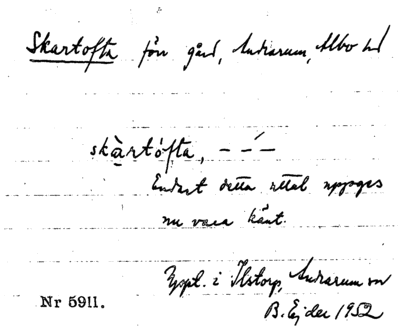 Skartofta förr gård, Andrarum, Albo hd
skàrtófta, – –́ –
Endast detta uttal uppges
nu vara känt.
Uppt. i Ilstorp, Andrarum sn
B. Ejder 1952
Nr 5911.